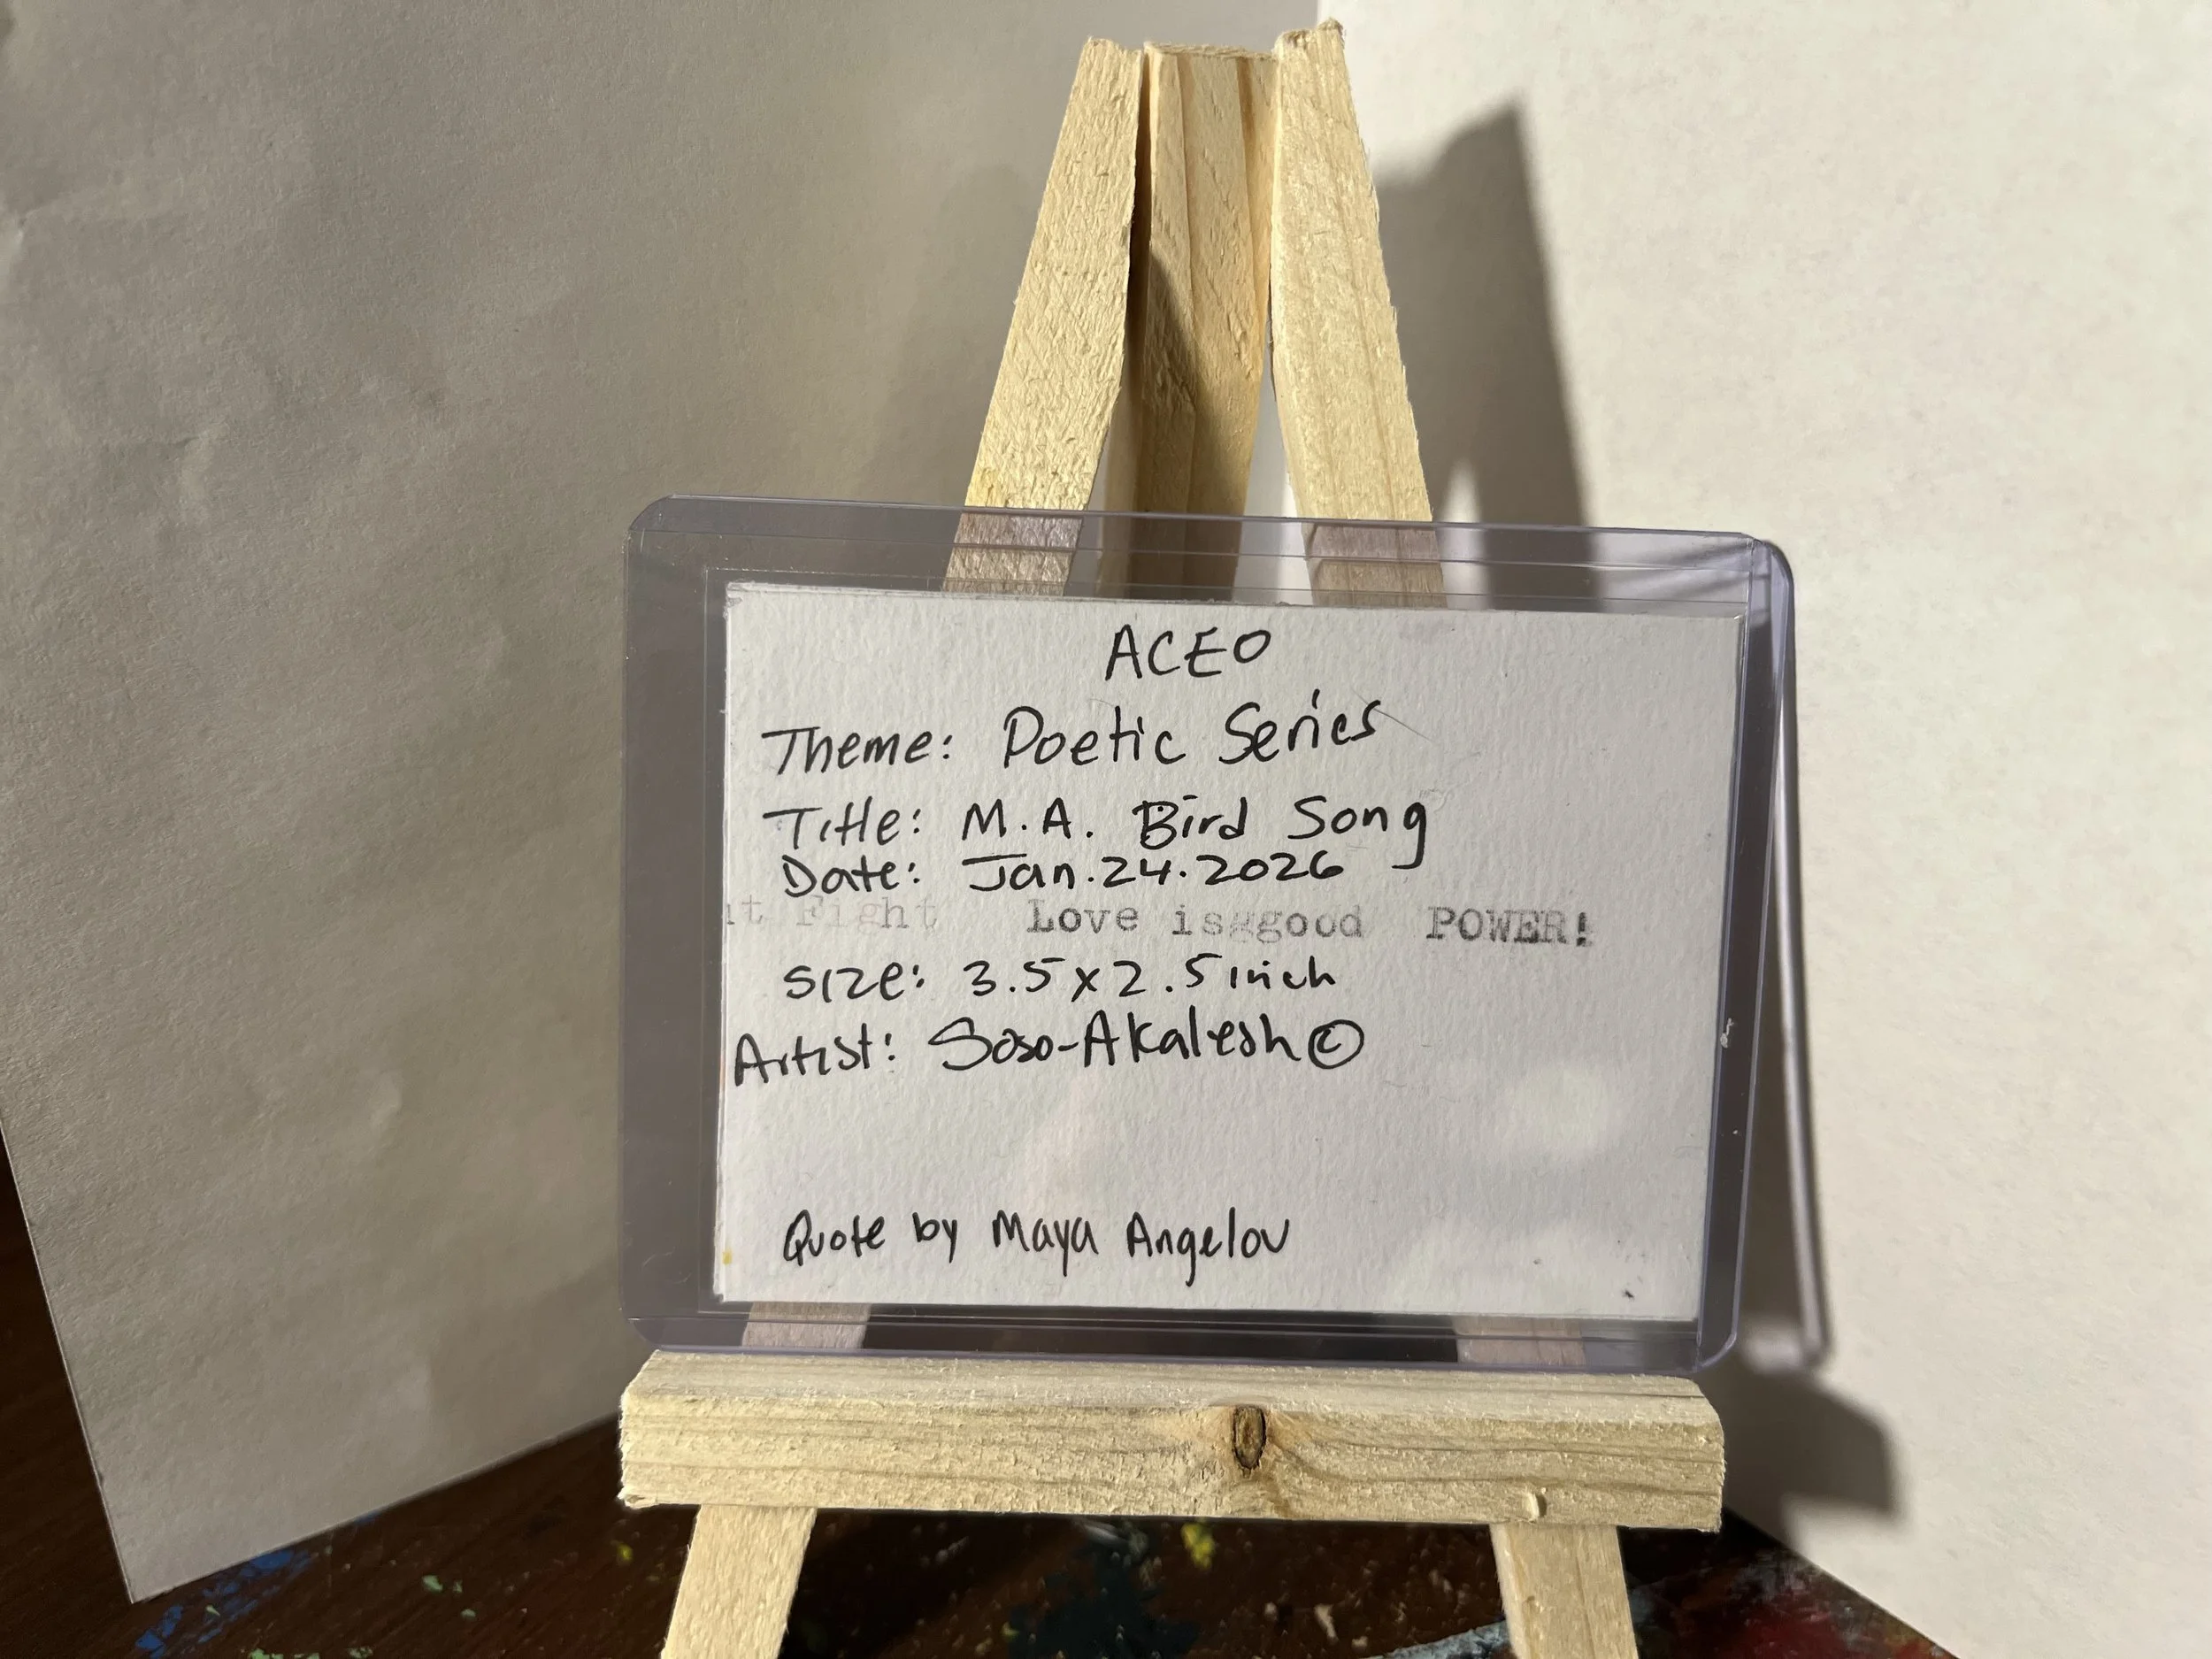 ACEO
Theme: Poetic Series
Title: M.A. Bird Song
Date: Jan.24.2026
Fight Love isggood POWER!
Size: 3.5x2.5inch
Artist: Soso-Akalesh©
Quote by Maya Angelou